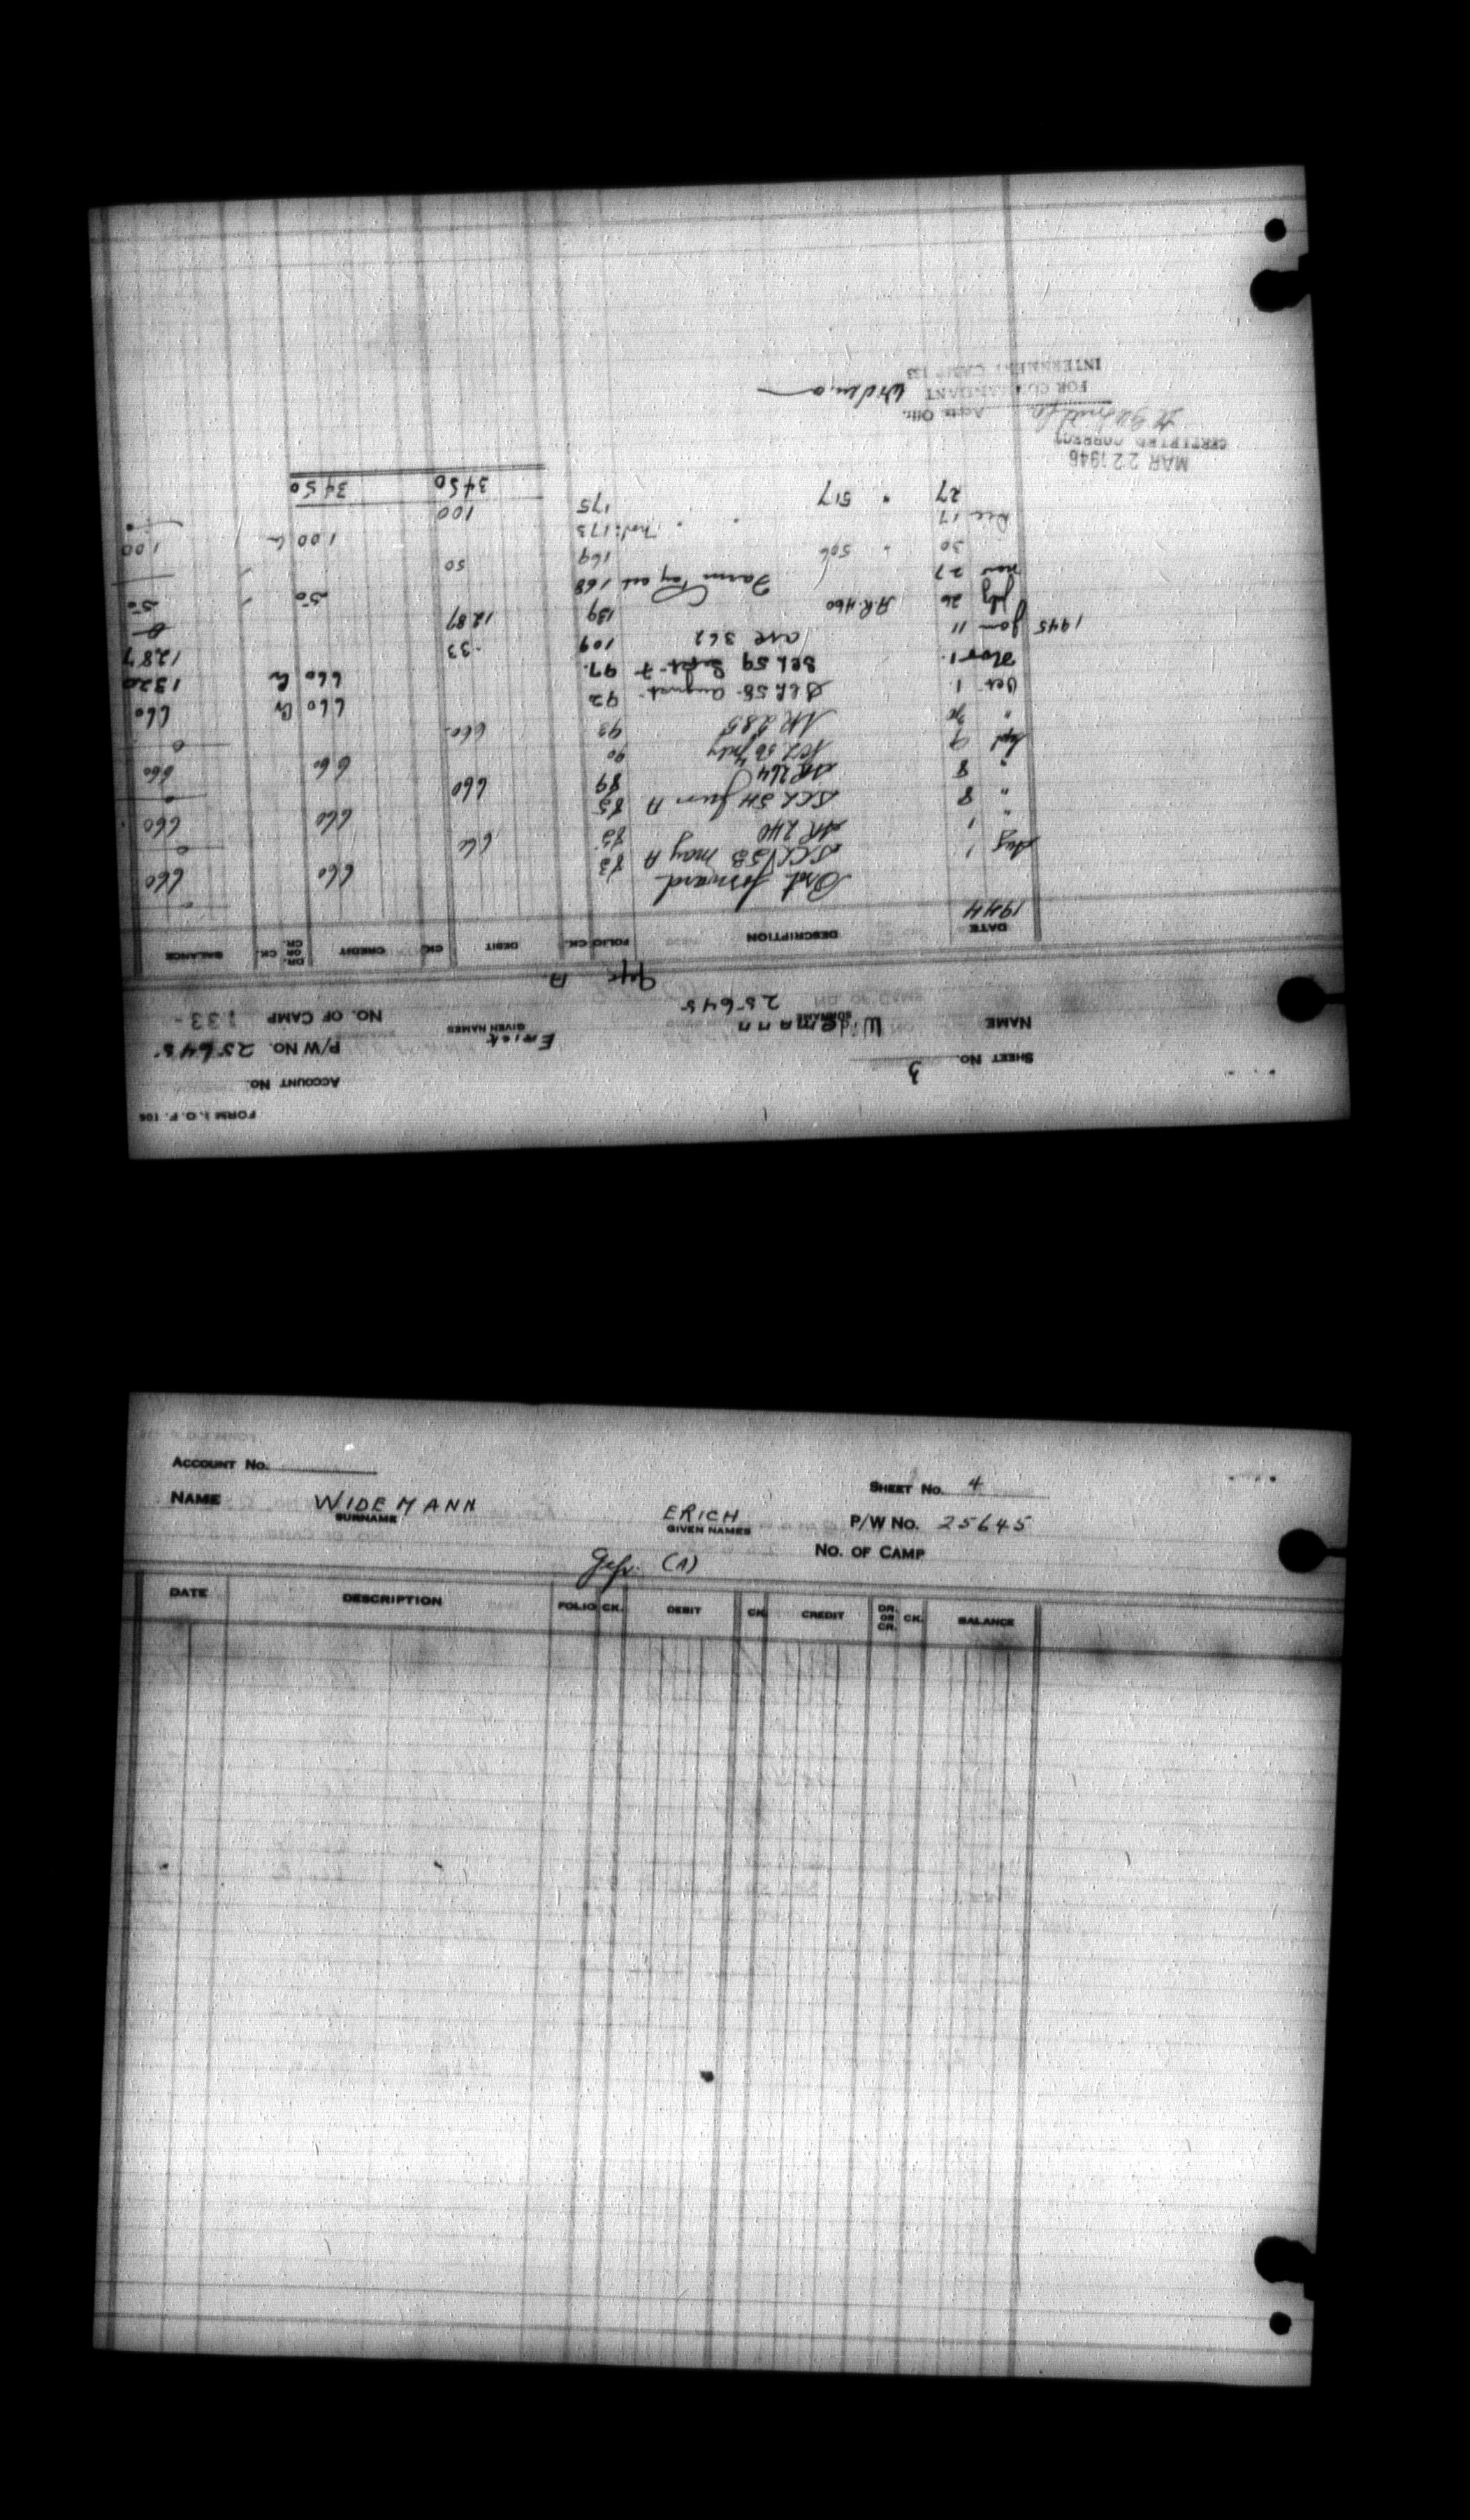 FORM I.O.F. 106
ACCOUNT No.
SHEET No. 3 P/W No. 25645
NAME Widemann Erich
SURNAME GIVEN NAMES NO. OF CAMP 133-
25645
Gefr A
DATE DESCRIPTION FOLIO CK. DEBIT CK CREDIT DR. OR CR. CK. BALANCE
1944
Brot forward
Aug 1 83 660 660
" 1 AR 240 660
" 8 SCL 54 June A 85 660 660
" 8 AR 264 89 660
Sept 9 90 660 660
" 30 AR 285 660
Oct 1. SCL 58 August 92 660 Cr 660
Nov 1. SCL 59 Sept 97. 660 Cr 1320
1945 Jan 11 362 109 .33 1287
July 26 A.R. 460 139 1287 0
Nov 27 168 50 50
30 " 506 169 50
Dec 17 " " 173 100 Cr 100
27 " 517 175 100
3450 3450
MAR 22 1946
CERTIFIED CORRECT
Accts Offr.
FOR COMMANDANT
INTERNMENT CAMP 133
ACCOUNT No.
SHEET No. 4
NAME WIDEMANN ERICH P/W No. 25645
SURNAME GIVEN NAMES
NO. OF CAMP
Gefr. (A)
DATE DESCRIPTION FOLIO CK. DEBIT CK CREDIT DR. OR CR. CK. BALANCE